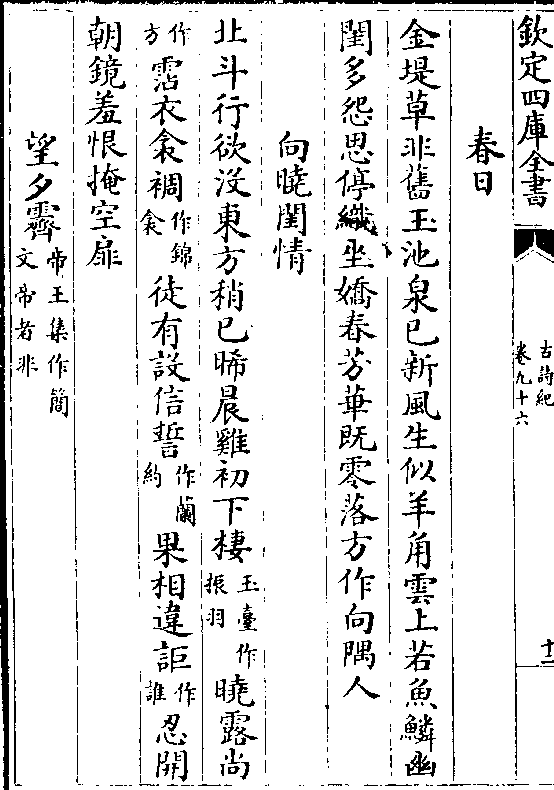 欽定四庫全書
古詩紀
卷九十六
十二
春日
金堤草非舊玉池泉已新風生似羊角雲上若魚鱗幽
閨多怨思停織坐嬌春芳華既零落方作向隅人
向曉閨情
北斗行欲沒東方稍已晞晨雞初下棲玉臺作振羽曉露尚
作方霑衣衾裯作錦衾徒有設信誓作蘭約果相違詎作誰忍開
朝鏡羞恨掩空扉
望夕霽帝王集作簡文帝者非